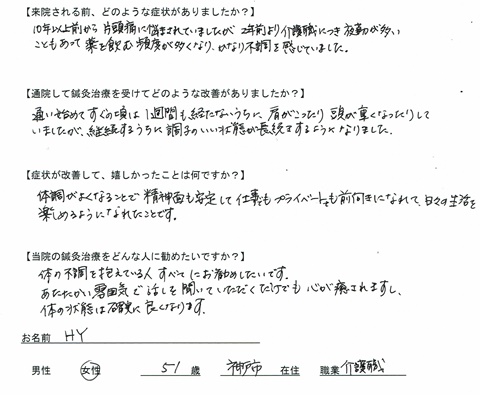 【来院される前、どのような症状がありましたか？】
10年以上前から片頭痛に悩まされていましたが、2年前より介護職につき夜勤が多い
こともあって薬を飲む頻度が多くなり、かなり不調を感じていました。
【通院して鍼灸治療を受けてどのような改善がありましたか？】
通い始めてすぐの頃は1週間も経たないうちに肩がこったり頭が重くなったりして
いましたが、継続するうちに調子のいい状態が長続きするようになりました。
【症状が改善して、嬉しかったことは何ですか？】
体調がよくなることで精神面も安定して仕事もプライベートも前向きになれて、日々の生活を
楽しめるようになれたことです。
【当院の鍼灸治療をどんな人に勧めたいですか？】
体の不調を抱えている人すべてにお勧めしたいです。
あたたかい雰囲気で話しを聞いていただくだけでも心が癒されますし、
体の状態は確実に良くなります。
お名前 HY
男性 女性 51 歳 神戸市 在住 職業 介護職